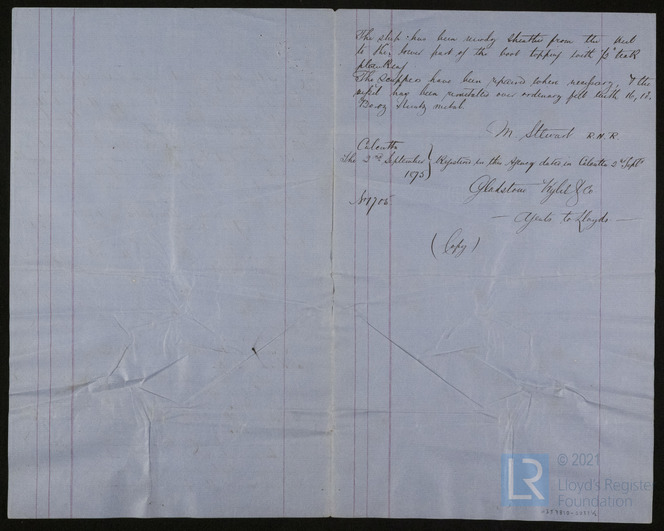 The ship has been newly sheathed from the keel
to the lower part of the boot topping with ⅝" teak
planking
The scuppers have been repaired where necessary, & the
vessel has been remetalled over ordinary felt with 16, 18
& 20 oz metal.
M. Stewart R.N.R
Calcutta
The 2nd September } Registered in this Agency dates in Calcutta 2d Septr
1873
Gladstone Wyllie & Co
No 1705
— Agents to Lloyds —
(Copy)
LR © 2021
Lloyd's Register
Foundation